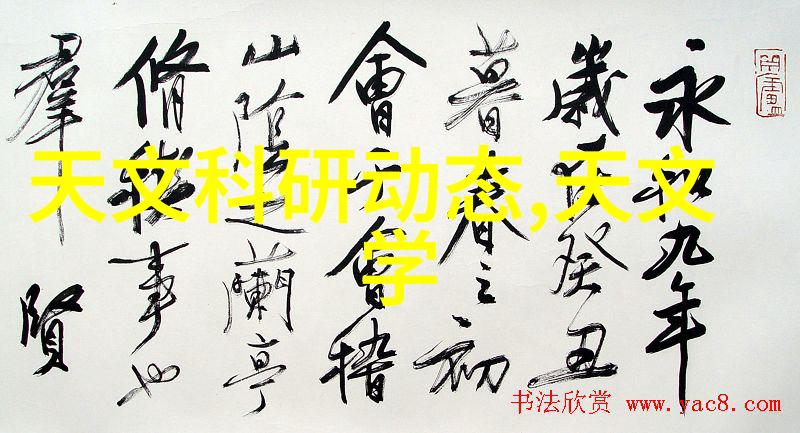 永和九年
歲在癸丑
暮春之初
會于會稽
山陰之蘭亭
脩稧事也
羣賢
天文科研动态,天文
学
书法欣赏 www.yac8.com